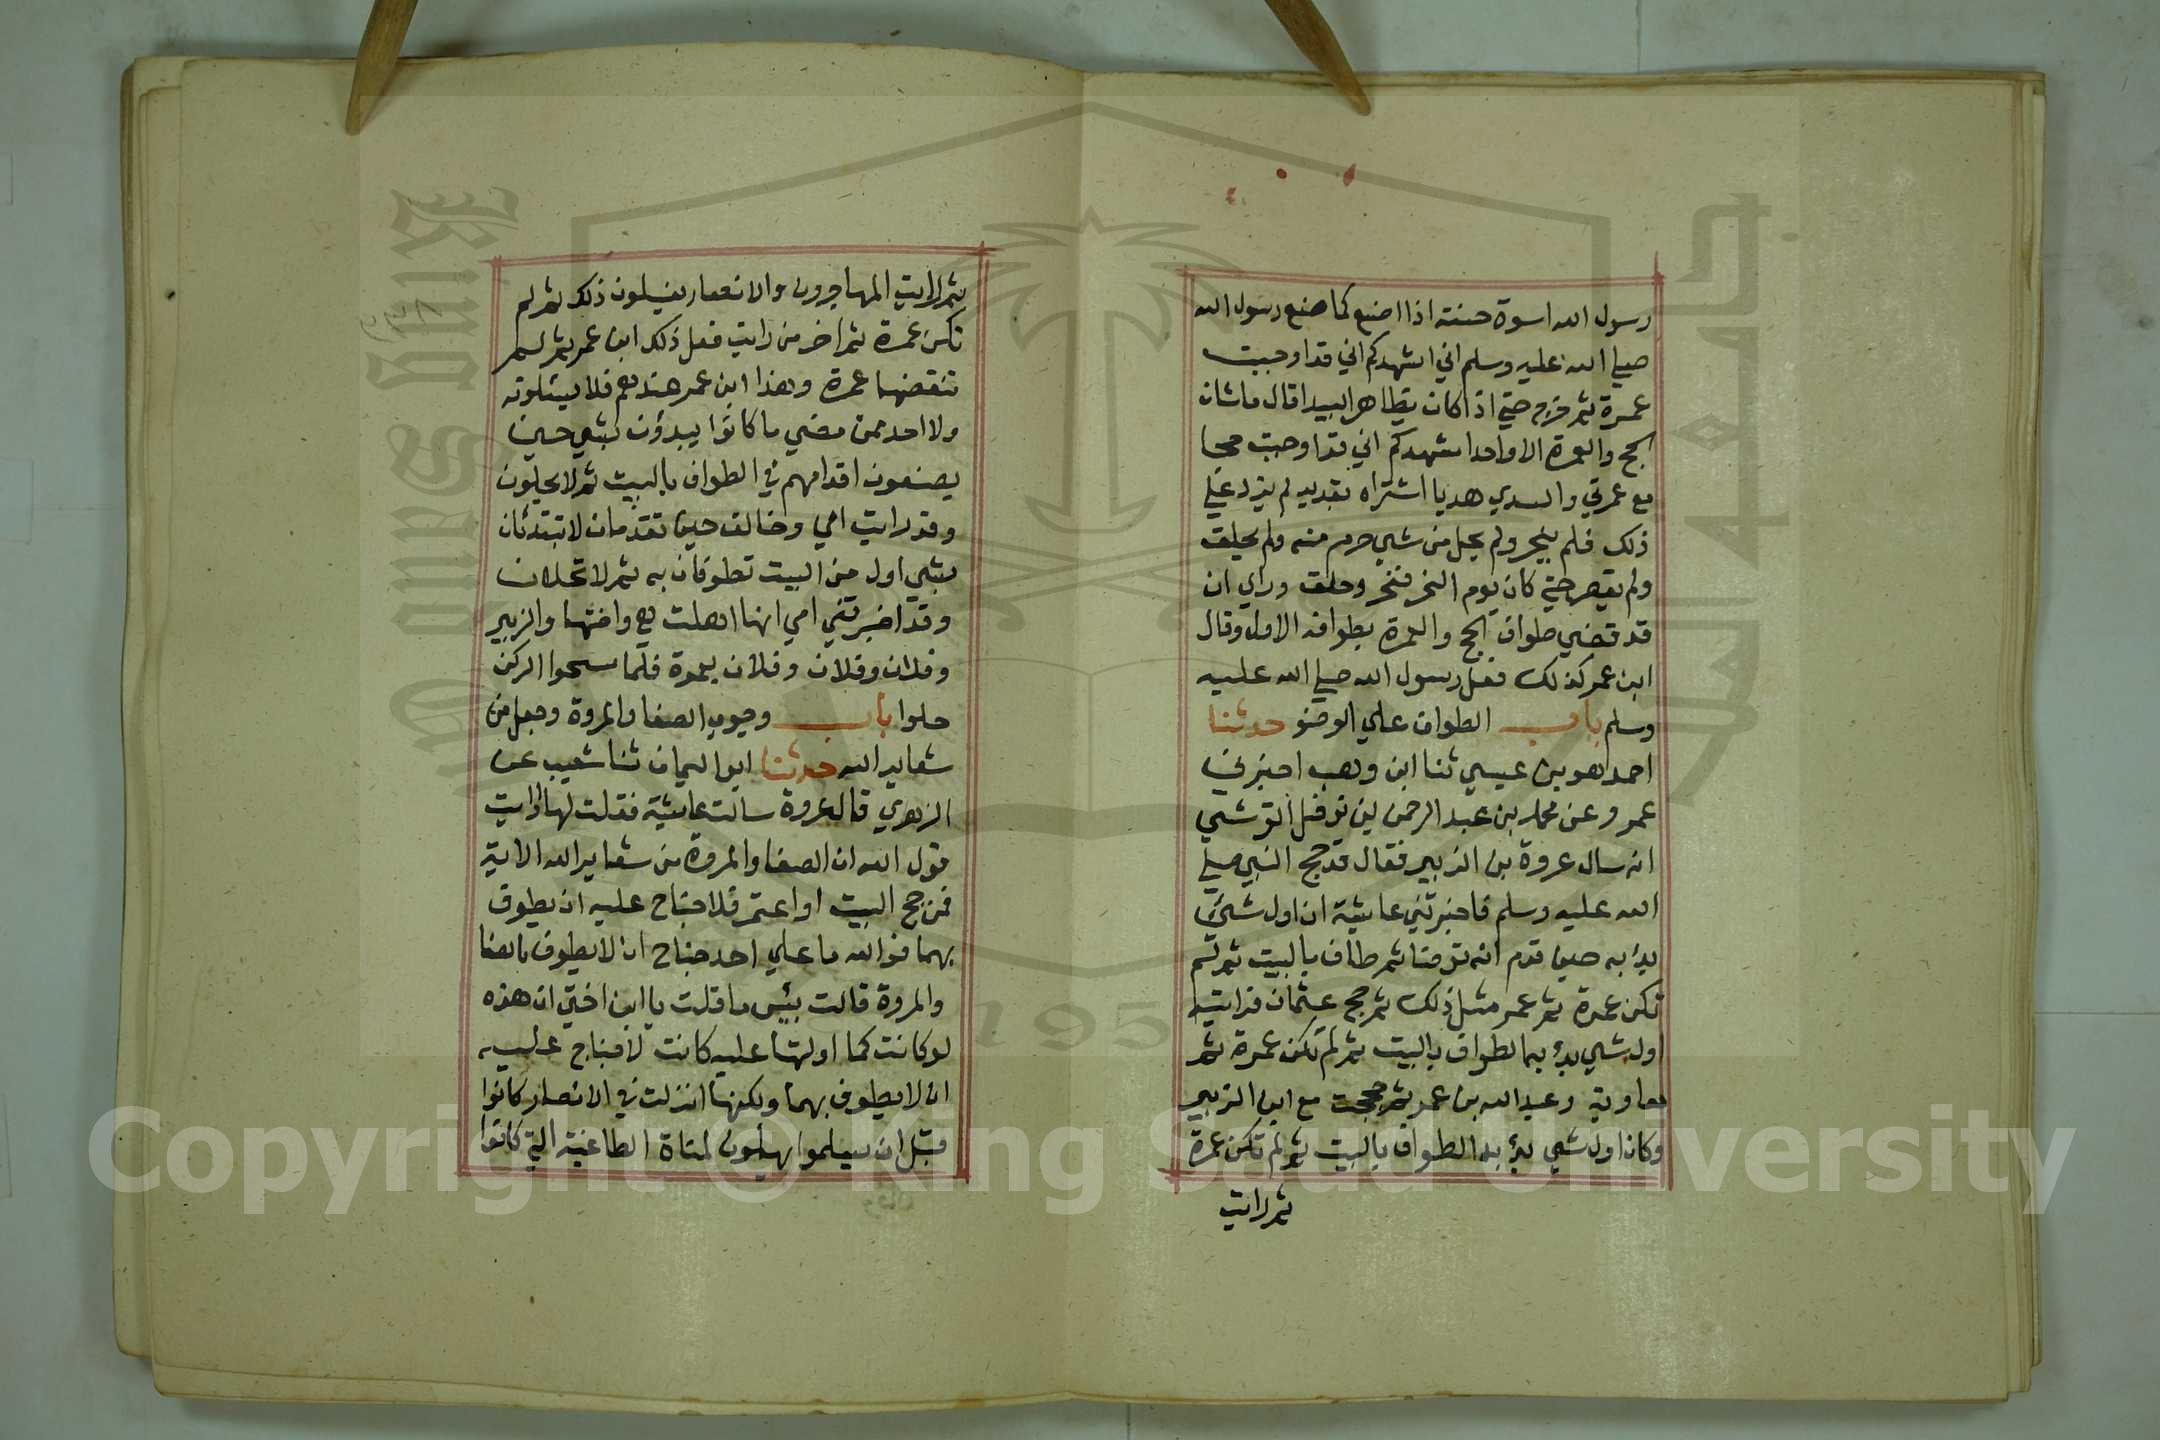 رسول الله اسوة حسنة اذا اصنع كما صنع رسول الله
صلي الله عليه وسلم اني اشهدكم اني قد اوجبت
عمرة ثم خرج حتي اذا كان بظاهر البيدا قال ما شان
الحج والعمرة الا واحد اشهدكم اني قد اوجبت حجا
مع عمرتي واهدي هديا اشتراه بقديد لم يزد علي
ذلك فلم ينحر ولم يحل من شي حرم منه ولم يحلق
ولم يقصر حتي كان يوم النحر فنحر وحلق وراي ان
قد قضي طواف الحج والعمرة بطوافه الاول وقال
ابن عمر كذلك فعل رسول الله صلي الله عليه
وسلم باب الطواف علي الوضو حدثنا
احمد هو بن عيسي ثنا ابن وهب اخبرني
عمرو عن محمد بن عبد الرحمن بن نوفل القرشي
انه سال عروة بن الزبير فقال قد حج النبي صلي
الله عليه وسلم فاخبرتني عايشة ان اول شي
بدء به حين قدم انه توضا ثم طاف بالبيت ثم لم
تكن عمرة ثم عمر مثل ذلك ثم حج عثمان فرايته
اول شي بدء به الطواف بالبيت ثم لم تكن عمرة ثم
معاوية وعبد الله بن عمر ثم حججت مع ابن الزبير
وكان اول شي بدء به الطواف بالبيت ثم لم تكن عمرة
ثم رايت
ثم رايت المهاجرون والانصار يفعلون ذلك ثم لم
تكن عمرة ثم اخر من رايت فعل ذلك ابن عمر ثم لم
تنقضها عمرة وهذا ابن عمر عندهم فلا يسئلونه
ولا احد ممن مضي ما كانوا يبدؤن بشي حين
يضعون اقدامهم في الطواف بالبيت ثم لا يحلون
وقد رايت امي وخالتي حين تقدمان لا تبتدئان
بشي اول من البيت تطوفان به ثم لا تحلان
وقد اخبرتني امي انها اهلت هي واختها والزبير
وفلان وفلان وفلان بعمرة فلما مسحوا الركن
حلوا باب وجوب الصفا والمروة وجعل من
شعاير الله حدثنا ابو اليمان ثنا شعيب عن
الزهري قال عروة سالت عايشة فقلت لها ارايت
قول الله ان الصفا والمروة من شعاير الله الاية
فمن حج البيت او اعتمر فلا جناح عليه ان يطوف
بهما فوالله ما علي احد جناح ان لا يطوف بالصفا
والمروة قالت بئس ما قلت يا ابن اختي ان هذه
لو كانت كما اولتها عليه كانت لا جناح عليه
ان لا يطوف بهما ولكنها انزلت في الانصار كانوا
قبل ان يسلموا يهلون لمناة الطاغية التي كانوا
King Saud University
جامعة الملك سعود
1957
Copyright © King Saud University